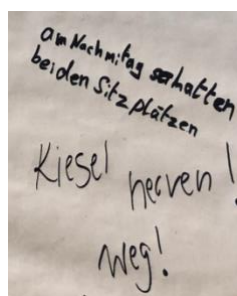 am Nachmitag schatten
bei den Sitzplätzen
Kiesel nerven!
weg!